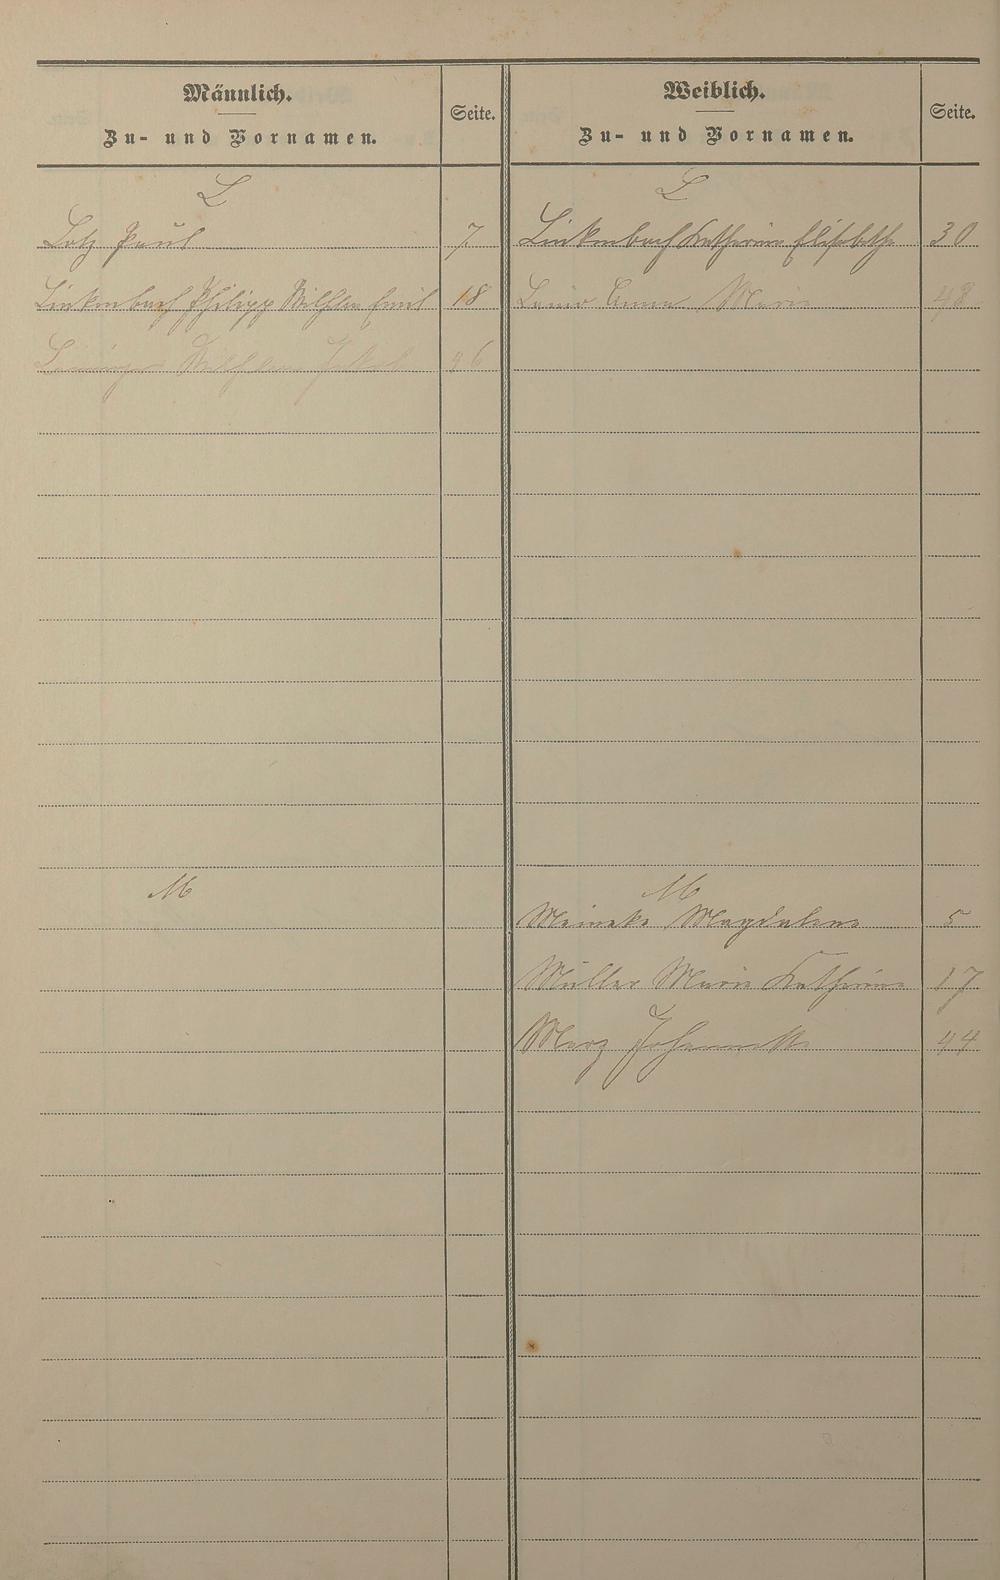 Männlich.
Zu- und Vornamen.
Seite.
Weiblich.
Zu- und Vornamen.
Seite.
L
L
Lotz Paul 7
Linkenbach Katharine Elisabethe 30
Linkenbach Philipp Wilhelm Emil 18
Anna Marie 48
Wilhelm Jakob 46
M
M
Meineke Magdalene 5
Müller Marie Katharine 17
Merz Johannette 44